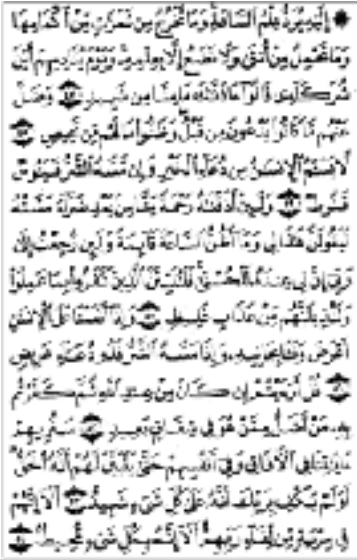 ۞ إِلَيْهِ يُرَدُّ عِلْمُ السَّاعَةِ وَمَا تَخْرُجُ مِن ثَمَرَاتٍ مِّنْ أَكْمَامِهَا
وَمَا تَحْمِلُ مِنْ أُنثَىٰ وَلَا تَضَعُ إِلَّا بِعِلْمِهِ وَيَوْمَ يُنَادِيهِمْ أَيْنَ
شُرَكَاءِي قَالُوا ءَاذَنَّاكَ مَا مِنَّا مِن شَهِيدٍ وَضَلَّ
عَنْهُم مَّا كَانُوا يَدْعُونَ مِن قَبْلُ وَظَنُّوا مَا لَهُم مِّن مَّحِيصٍ
لَّا يَسْـَٔمُ الْإِنسَانُ مِن دُعَاءِ الْخَيْرِ وَإِن مَّسَّهُ الشَّرُّ فَيَـُٔوسٌ
قَنُوطٌ وَلَئِنْ أَذَقْنَاهُ رَحْمَةً مِّنَّا مِن بَعْدِ ضَرَّاءَ مَسَّتْهُ
لَيَقُولَنَّ هَٰذَا لِي وَمَا أَظُنُّ السَّاعَةَ قَائِمَةً وَلَئِن رُّجِعْتُ إِلَىٰ
رَبِّي إِنَّ لِي عِندَهُ لَلْحُسْنَىٰ فَلَنُنَبِّئَنَّ الَّذِينَ كَفَرُوا بِمَا عَمِلُوا
وَلَنُذِيقَنَّهُم مِّنْ عَذَابٍ غَلِيظٍ وَإِذَا أَنْعَمْنَا عَلَى الْإِنسَانِ
أَعْرَضَ وَنَـَٔا بِجَانِبِهِ وَإِذَا مَسَّهُ الشَّرُّ فَذُو دُعَاءٍ عَرِيضٍ
قُلْ أَرَءَيْتُمْ إِن كَانَ مِنْ عِندِ اللَّهِ ثُمَّ كَفَرْتُم
بِهِ مَنْ أَضَلُّ مِمَّنْ هُوَ فِي شِقَاقٍ بَعِيدٍ سَنُرِيهِمْ
ءَايَاتِنَا فِي الْآفَاقِ وَفِي أَنفُسِهِمْ حَتَّىٰ يَتَبَيَّنَ لَهُمْ أَنَّهُ الْحَقُّ
أَوَلَمْ يَكْفِ بِرَبِّكَ أَنَّهُ عَلَىٰ كُلِّ شَيْءٍ شَهِيدٌ أَلَا إِنَّهُمْ
فِي مِرْيَةٍ مِّن لِّقَاءِ رَبِّهِمْ أَلَا إِنَّهُ بِكُلِّ شَيْءٍ مُّحِيطٌ